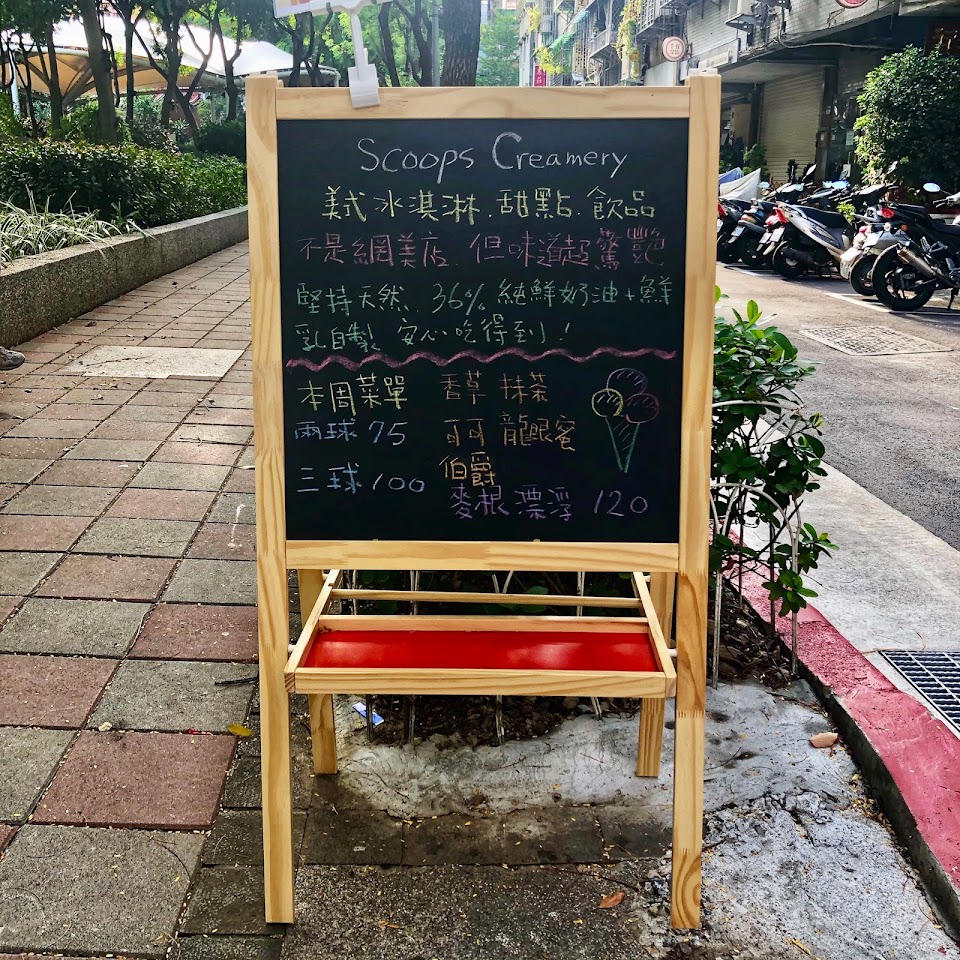 Scoops Creamery
美式冰淇淋.甜點.飲品
不是網美店.但味道超驚艷
堅持天然、36%純鮮奶油+鮮
乳自製 安心吃得到!
本周菜單 香草 抹茶
兩球 75 可可 龍眼蜜
三球 100 伯爵
麥根漂浮 120